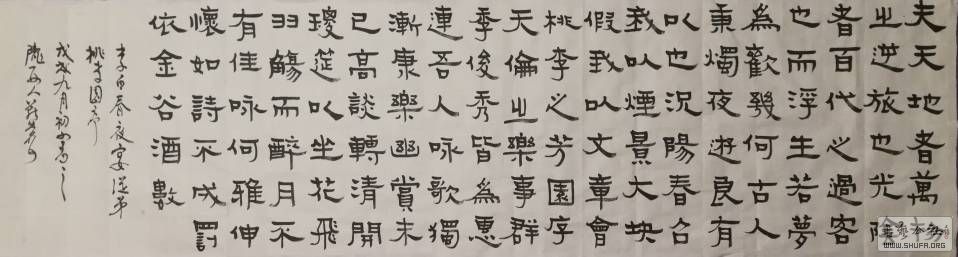 夫天地者萬
之逆旅也光陰
者百代之過客
也而浮生若夢
為歡幾何古人
秉燭夜遊良有
以也況陽春召
我以煙景大塊
假我以文章會
桃李之芳園序
天倫之樂事群
季俊秀皆為惠
連吾人咏歌獨
慚康樂幽賞未
已高談轉清開
瓊筵以坐花飛
羽觴而醉月不
有佳咏何雅伸
懷如詩不成罰
依金谷酒數
李白春夜宴從弟
桃李園序
戊戌九月初
隴西人
WWW.SHUFA.ORG